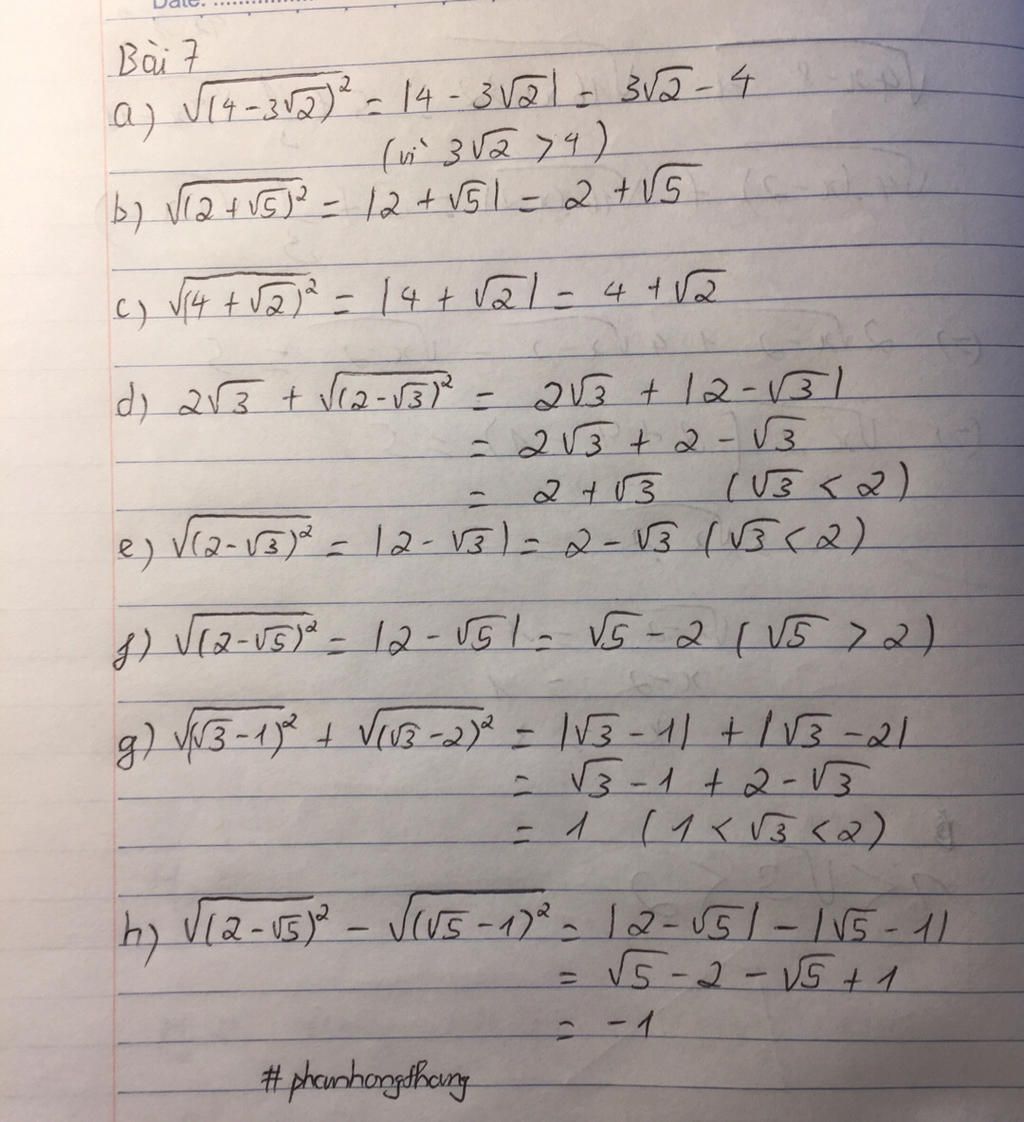 Date: ..............
Bài 7
a) √(4-3√2)² = |4 - 3√2| = 3√2 - 4
(vì 3√2 > 4)
b) √(2+√5)² = |2 + √5| = 2 + √5
c) √(4+√2)² = |4 + √2| = 4 + √2
d) 2√3 + √(2-√3)² = 2√3 + |2 - √3|
= 2√3 + 2 - √3
= 2 + √3 (√3 < 2)
e) √(2-√3)² = |2 - √3| = 2 - √3 (√3 < 2)
f) √(2-√5)² = |2 - √5| = √5 - 2 (√5 > 2)
g) √(√3-1)² + √(√3-2)² = |√3 - 1| + |√3 - 2|
= √3 - 1 + 2 - √3
= 1 (1 < √3 < 2)
h) √(2-√5)² - √(√5-1)² = |2 - √5| - |√5 - 1|
= √5 - 2 - √5 + 1
= -1
# phanhongthang